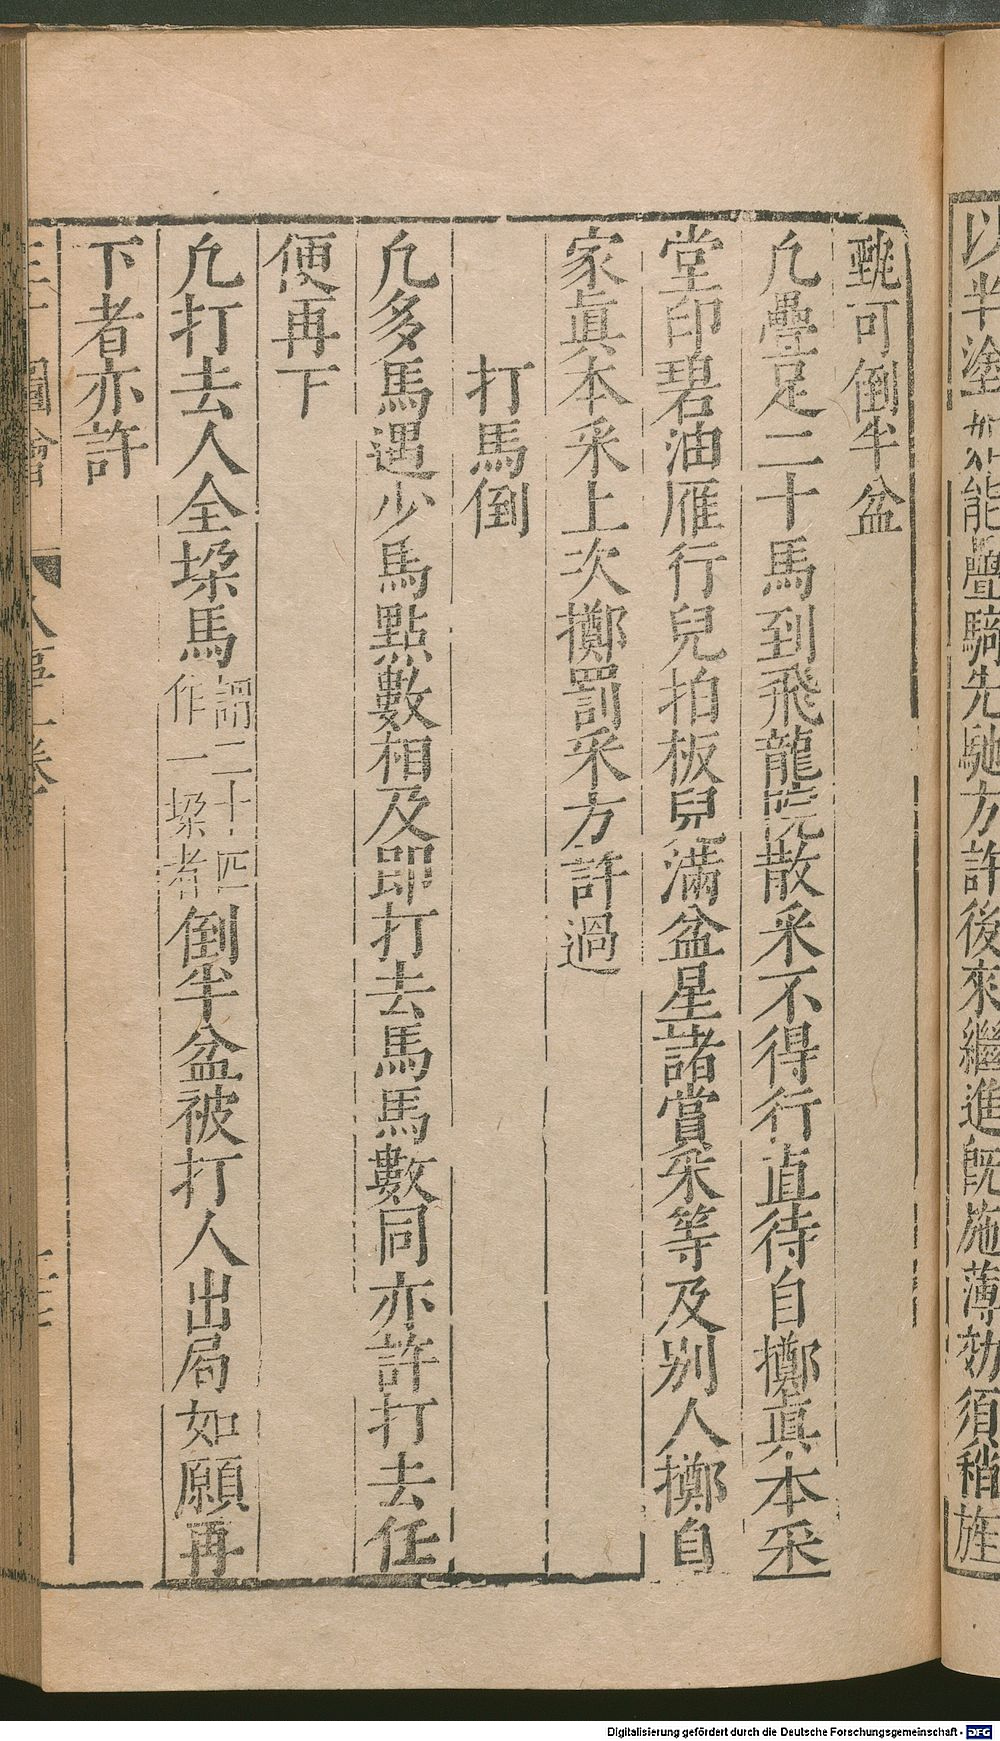 以半塗如能疊騎先馳方許後來繼進既施薄効須稍旌
甄可倒半盆
凢疊足二十馬到飛龍院散采不得行直待自擲眞本采
堂印碧油雁行兒拍板兒滿盆星諸賞采等及别人擲自
家眞本采上次擲罰采方許過
打馬倒
凢多馬遇少馬點數相及即打去馬馬數同亦許打去任
便再下
凢打去人全垜馬謂二十匹作一垜者倒半盆被打人出局如願再
下者亦許
三才圖會 人事八卷
Digitalisierung gefördert durch die Deutsche Forschungsgemeinschaft - DFG